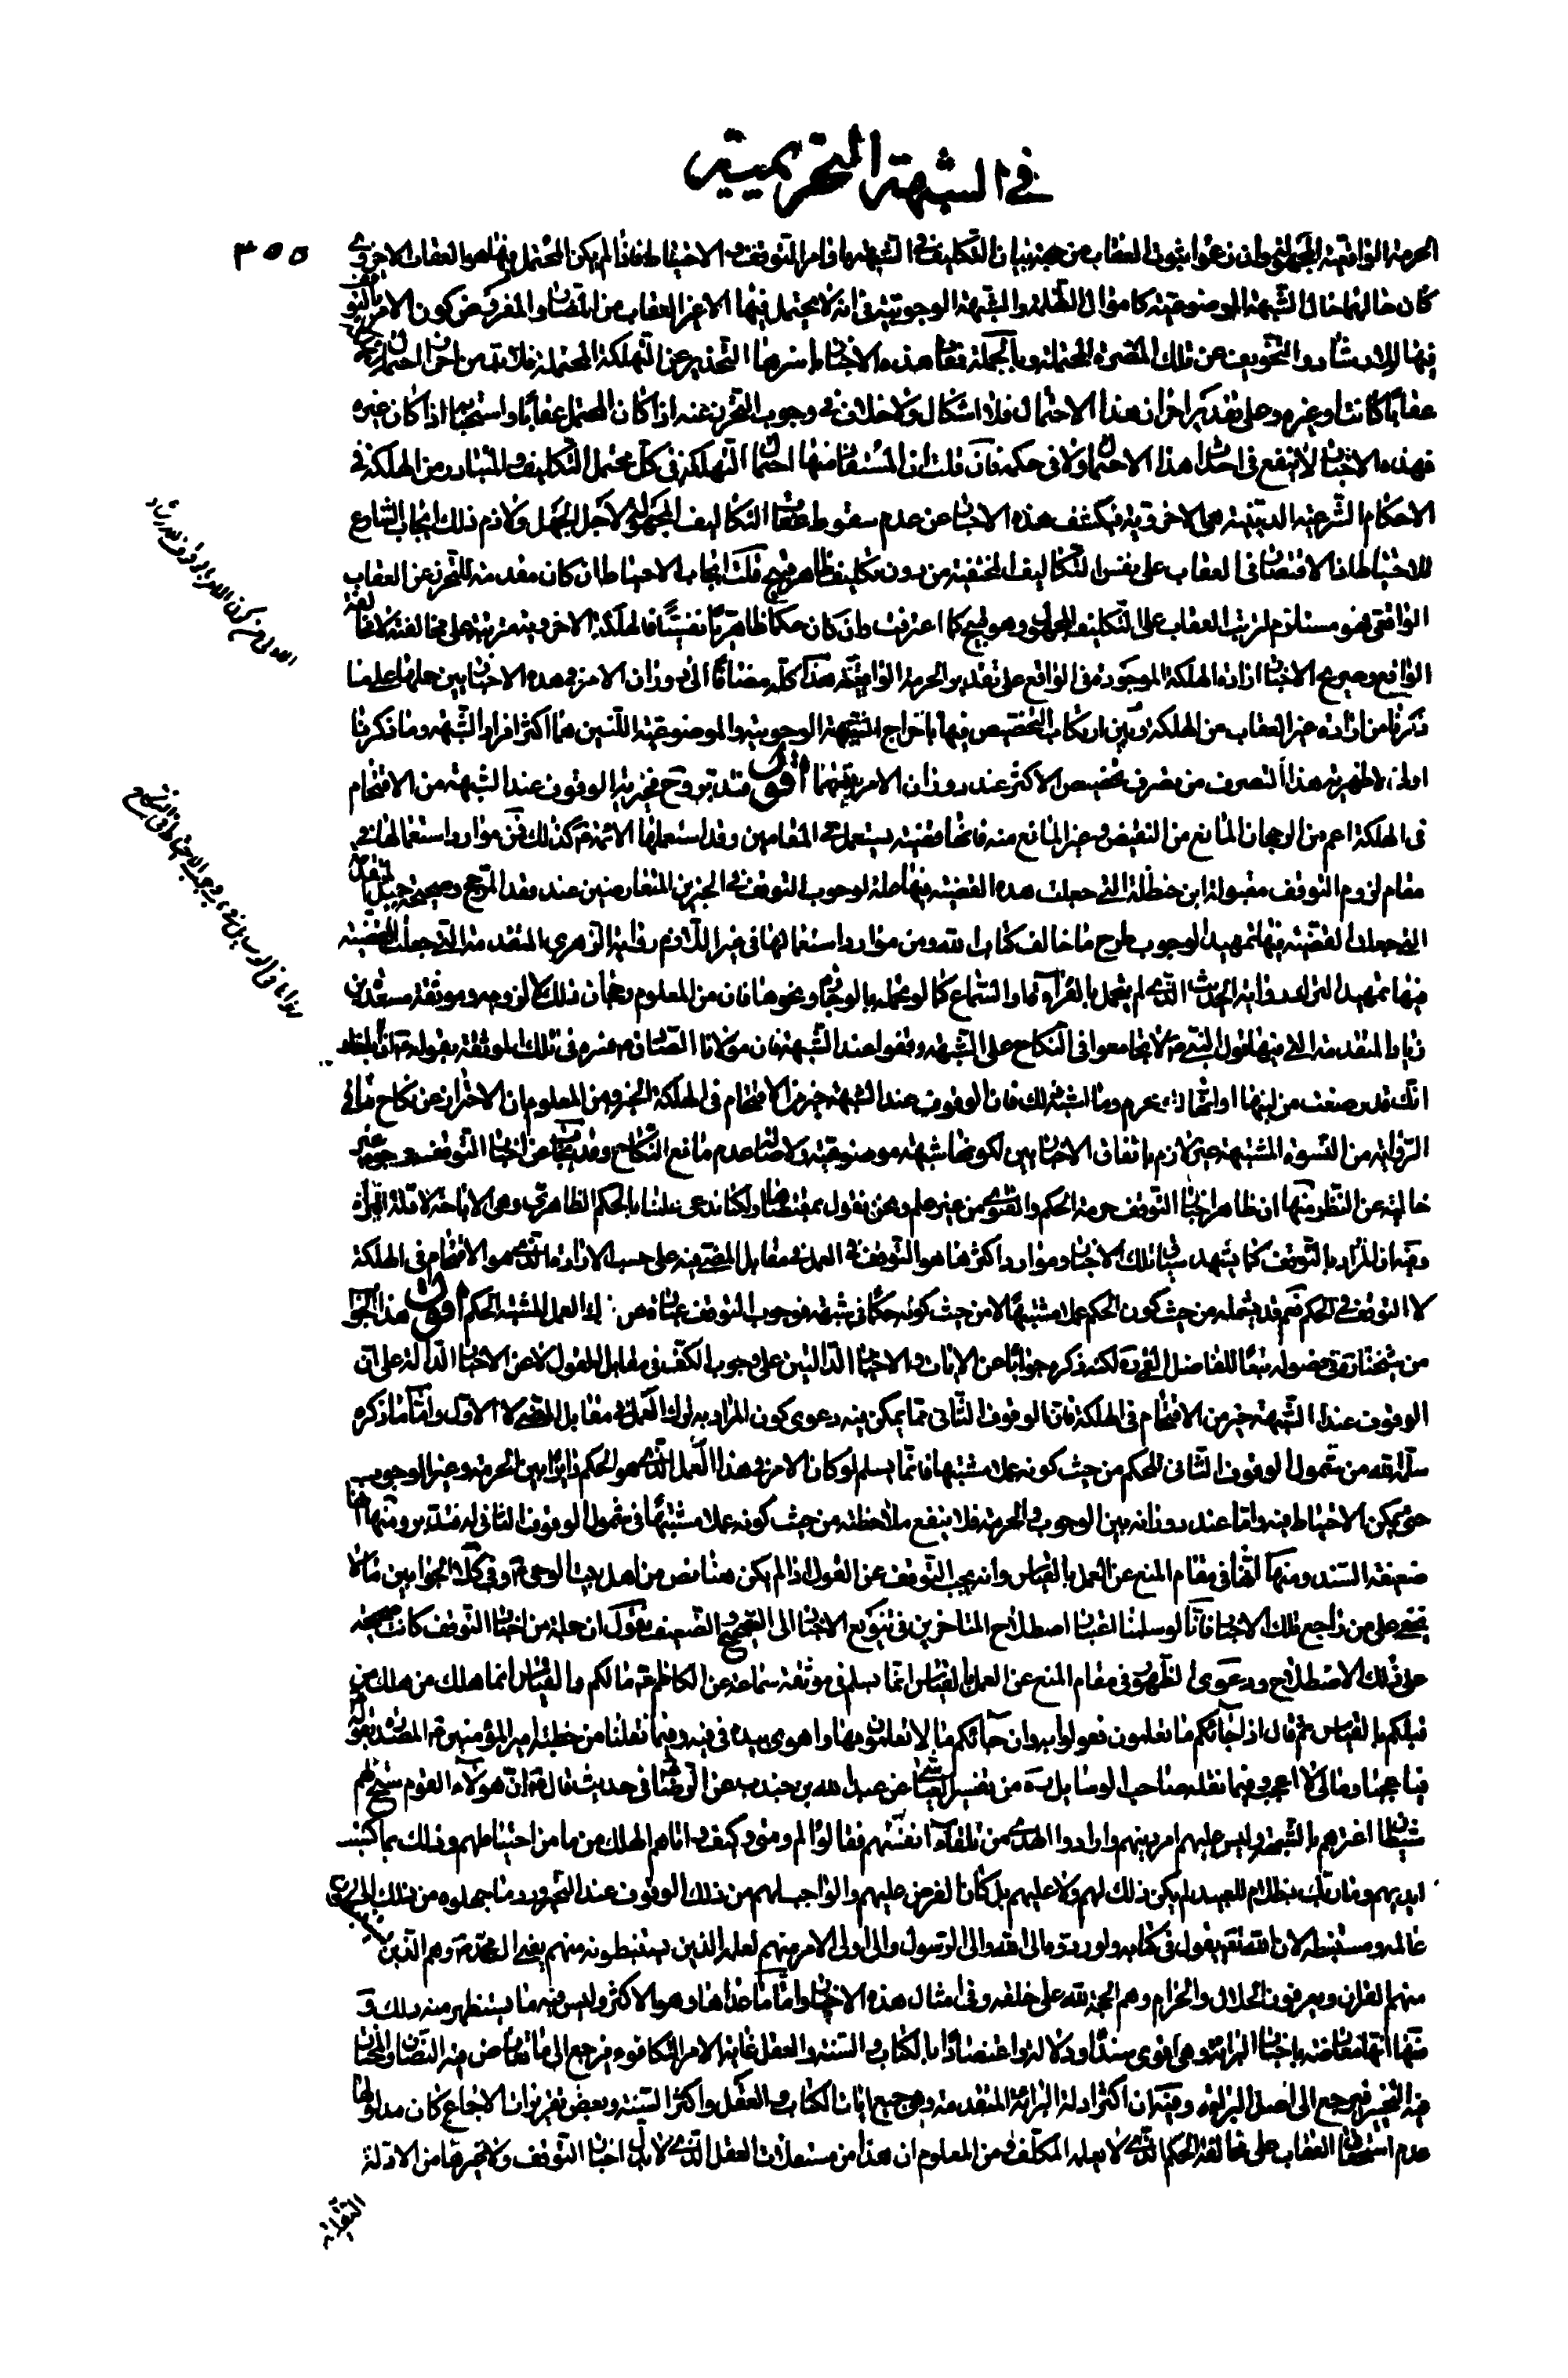 في الشبهة التحريمية
٣٥٥
الحرمة الواقعية المجهولة وان زعموا ثبوت العقاب من جهة بيان التكليف في الشبهة باوامر التوقف والاحتياط فاذا لم يكن المحتمل فيها هو العقاب الاخروي
كان حالها حال الشبهة الموضوعية كاموال الظلمة والشبهة الوجوبية في انه لا يحتمل فيها الا غير العقاب من المضار والمفروض كون الامر بالتوقف
فيها للارشاد والتخويف عن تلك المضرة المحتملة وبالجملة فمفاد هذه الاخبار باسرها التحذير عن التهلكة المحتملة فلا بد من احراز احتمال التهلكة
عقابا كانت او غيره وعلى تقدير احراز هذا الاحتمال فلا اشكال ولا خلاف في وجوب التحرز عنه اذا كان المحتمل عقابا واستحبابه اذا كان غيره
فهذه الاخبار لا ينفع في احداث هذا الاحتمال ولا في حكمه فان قلت ان المستفاد منها احتمال التهلكة في كل محتمل التكليف والمتبادر من الهلكة في
الاحكام الشرعية الدينية هي الاخروية فيكشف هذه الاخبار عن عدم سقوط عقاب التكاليف المجهولة لاجل الجهل ولازم ذلك ايجاب الشارع
للاحتياط اذ الاقتصار في العقاب على نفس التكاليف المختفية من دون تكليف ظاهري قبيح قلت ايجاب الاحتياط ان كان مقدمة للتحرز عن العقاب
الواقعي فهو مستلزم لترتب العقاب على التكليف المجهول وهو قبيح كما اعترفت وان كان حكما ظاهريا نفسيا فالهلكة الاخروية مترتبة على مخالفته لا مخالفة
الواقع وصريح الاخبار ارادة الهلكة الموجودة في الواقع على تقدير الحرمة الواقعية هذا كله مضافا الى دوران الامر في هذه الاخبار بين حملها على ما
ذكرنا من ارادة غير العقاب من الهلكة وبين ارتكاب التخصيص فيها باخراج الشبهة الوجوبية والموضوعية اللتين هما اكثر افراد الشبهة وما ذكرنا
اولى لاظهرية هذا التصرف من تصرف تخصيص الاكثر عند دوران الامر بينهما اقول فتدبر وح فخيرية الوقوف عند الشبهة من الاقتحام
في الهلكة اعم من الرجحان المانع من النقيض وغير المانع منه فانها قضية يستعمل في المقامين وقد استعملها الائمة ع كذلك فمن موارد استعمالها في
مقام لزوم التوقف مقبولة ابن حنظلة التي جعلت هذه القضية فيها علة لوجوب التوقف في الخبرين المتعارضين عند فقد المرجح وصحيحة جميل المتقدمة
التي جعلت القضية فيها تمهيدا لوجوب طرح ما خالف كتاب الله ومن موارد استعمالها في غير اللازم رواية الزهري المتقدمة التي جعلت القضية
فيها تمهيدا لترك رواية الحديث الذي لم يتحمل بالقراءة او السماع كما لو تحمله بالوجادة ونحوها فان من المعلوم رجحان ذلك لا لزومه وموثقة مسعدة بن
زياد المتقدمة التي فيها قول النبي ص لا تجامعوا في النكاح على الشبهة وقفوا عند الشبهة فان مولانا الصادق ع فسره في تلك الموثقة بقوله ع اذا بلغك
انك قد رضعت من لبنها او انها لك محرم وما اشبه ذلك فان الوقوف عند الشبهة خير من الاقتحام في الهلكة الخبر ومن المعلوم ان الاحتراز عن نكاح ما في
الرواية من النسوة المشتبهة غير لازم باتفاق الاخباريين لكونها شبهة موضوعية ولاصالة عدم مانع النكاح وقد يجاب عن اخبار التوقف بوجوه غير
خالية عن النظر منها ان ظاهر اخبار التوقف حرمة الحكم والفتوى من غير علم ونحن نقول بمقتضاها ولكنا ندعي علمنا بالحكم الظاهري وهي الاباحة لادلة البراءة
وفيه ان المراد بالتوقف كما يشهد سياق تلك الاخبار وموارد اكثرها هو التوقف في العمل في مقابل المضي فيه على حسب الارادة الذي هو الاقتحام في الهلكة
لا التوقف في الحكم نعم قد يشمله من حيث كون الحكم عملا مشتبها لا من حيث كونه حكما في شبهة فوجوب التوقف عبارة عن ترك العمل المشتبه الحكم اقول هذا الجواب
من شيخنا ره في فصوله تبعا للفاضل النراقي لكنه ذكره جوابا عن الايات والاخبار الدالين على وجوب الكف في مقابل القول لا عن الاخبار الدالة على ان
الوقوف عند الشبهة خير من الاقتحام في الهلكة فان الوقوف الثاني مما يمكن فيه دعوى كون المراد به ترك العمل في مقابل المضي لا الاول واما ما ذكره
سلمه الله من شمول الوقوف الثاني للحكم من حيث كونه عملا مشتبها فانما يسلم لو كان الامر في هذا العمل الذي هو الحكم دائرا بين الحرمة وغير الوجوب
حتى يمكن الاحتياط فيه واما عند دورانه بين الوجوب والحرمة فلا ينفع ملاحظته من حيث كونه عملا مشتبها في شمول الوقوف الثاني له فتدبر ومنها انها
ضعيفة السند ومنها انها في مقام المنع عن العمل بالقياس وانه يجب التوقف عن القول اذا لم يكن هنا نص من اهل بيت الوحي ع وفي كلا الجوابين ما لا
يخفى على من راجع تلك الاخبار فانا لو سلمنا اعتبار اصطلاح المتاخرين في تنويع الاخبار الى الصحيح والضعيف نقول ان جملة من اخبار التوقف كانت صحيحة
على ذلك الاصطلاح ودعوى الظهور في مقام المنع عن العمل بالقياس انما يسلم في موثقة سماعة عن الكاظم ع ما لكم والقياس انما هلك من هلك من
قبلكم بالقياس ثم قال اذا جاءكم ما تعلمون فقولوا به وان جاءكم ما لا تعلمون فها واهوى بيده الى فيه وفيما نقلنا من خطبة امير المؤمنين ع المصدرة بقوله
فيا عجبا ومالي لا اعجب وفيما نقله صاحب الوسائل ره من تفسير العياشي عن عبد الله بن جندب عن الرضا في حديث قال ع ان هؤلاء القوم سنح لهم
شيطان اغترهم بالشبهة ولبس عليهم امر دينهم وارادوا الهدى من تلقاء انفسهم فقالوا لم ومتى وكيف فاتاهم الهلك من مامن احتياطهم وذلك بما كسبت
ايديهم وما ربك بظلام للعبيد لم يكن ذلك لهم ولا عليهم بل كان الفرض عليهم والواجب لهم من ذلك الوقوف عند التحير ورد ما جهلوه من ذلك الى
عالمه ومستنبطه لان الله تعالى يقول في كتابه ولو ردوه الى الله والى الرسول والى اولي الامر منهم لعلمه الذين يستنبطونه منهم يعني ال محمد ص وهم الذين يستنبطون
منهم القران ويعرفون الحلال والحرام وهم الحجة لله على خلقه وفي امثال هذه الاخبار واما ما عداها وهو الاكثر وليس فيه ما يستظهر منه ذلك و
منها انها معارضة باخبار البراءة وهي اقوى سندا ودلالة واعتضادا بالكتاب والسنة والعقل غاية الامر التكافؤ فيرجع الى ما تعارض فيه النصان والمختار
فيه التخيير فيرجع الى اصل البراءة وفيه ان اكثر ادلة البراءة المتقدمة وهي جميع ايات الكتاب والعقل واكثر السنة وبعض تقريرات الاجماع كان مدلولها
عدم استحقاق العقاب على مخالفة الحكم الذي لا يعلمه المكلف ومن المعلوم ان هذا من مستقلات العقل الذي لا يدل اخبار التوقف ولا غيرها من الادلة
النقلية